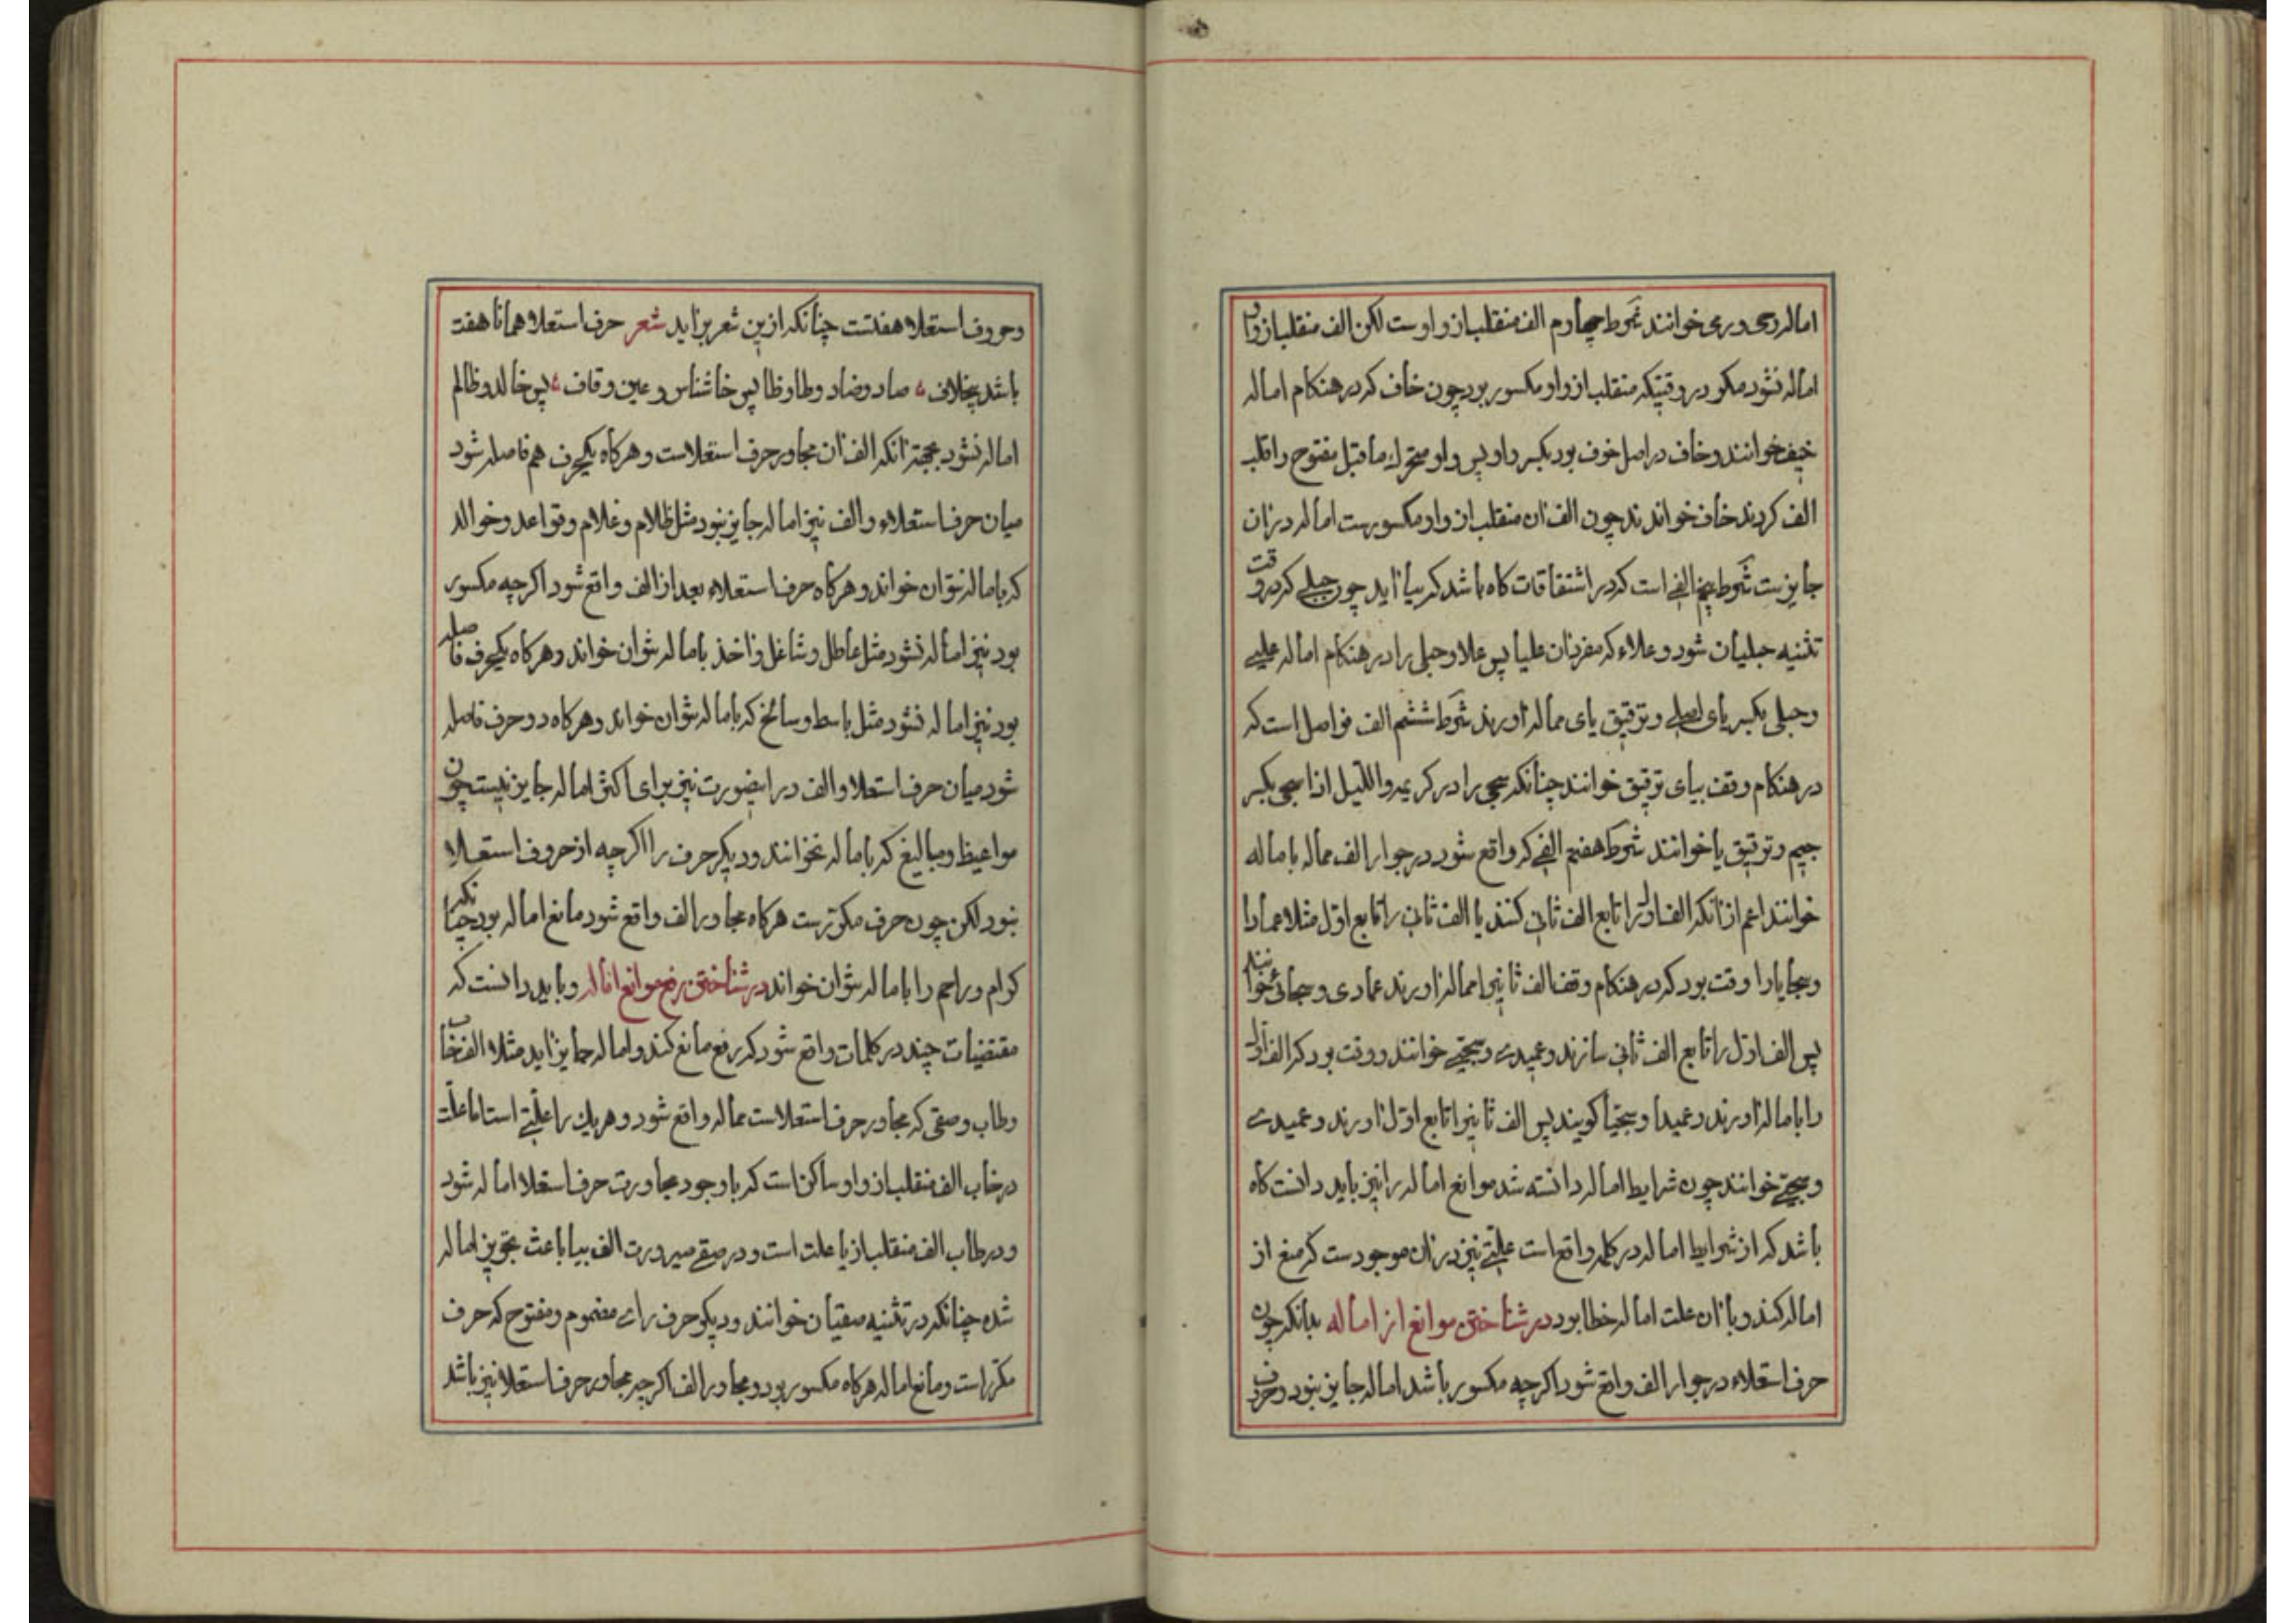 اماله ردی و رمی خوانند شرط چهارم الف منقلب از واوست لکن الف منقلب از واو
اماله نشود مکر در وقتیکه منقلب از واو مکسور بود چون خاف که در هنکام اماله
خیف خوانند و خاف در اصل خوف بود بکسر واو پس واو متحرک ماقبل مفتوح را قلب
الف کردند خاف خواندند چون الف ان منقلب از واو مکسورست اماله در ان
جایزست شرط پنجم الفی است که در اشتقاقات کاه باشد که بیا اید چون حبلی که در وقت
تثنیه حبلیان شود و علاء که مفردان علیا پس علا و حبلی را در هنکام اماله علیی
و حبلی بکسر یای اصلی و ترقیق یای مماله اورند شرط ششم الف فواصل است که
در هنکام وقف بیای ترقیق خوانند چنانکه سجی را در کریمه واللیل اذا سجی بکسر
جیم و ترقیق یا خوانند شرط هفتم الفی که واقع شود در جوار الف مماله باماله
خوانند اعم از انکه الف اول را تابع الف ثانی کنند یا الف ثانی را تابع اول مثلا عمادا
و سجایا را وقت بود که در هنکام وقف الف ثانیرا مماله اورند عمادی و سجائی خوانند
پس الف اول را تابع الف ثانی سازند و عمیدی و سجیی خوانند و وقت بود که الف اول
را باماله اورند و عمیدا و سجیا کویند پس الف ثانیرا تابع اول اورند و عمیدی
و سجیی خوانند چون شرایط اماله دانسته شد موانع اماله را نیز باید دانست کاه
باشد که از شرایط اماله در کلمه واقع است علتی نیز در ان موجودست که منع از
اماله کند و با ان علت اماله خطا بود در شناختن موانع از اماله بدانکه چون
حرف استعلاء در جوار الف واقع شود اکرچه مکسور باشد اماله جایز نبود و حرف
و حروف استعلا هفتست چنانکه ازین شعر برآید شعر حرف استعلا همانا هفت
باشد بیخلاف صاد و ضاد و طا و ظا پس خا شناس و غین و قاف پس خالد و ظالم
اماله نشود بجهة انکه الف ان مجاور حرف استعلاست و هرکاه یکحرف هم فاصله شود
میان حرف استعلاء و الف نیز اماله جایز نبود مثل ظلام و غلام و قواعد و خوالد
که باماله نتوان خواند و هرکاه حرف استعلاء بعد از الف واقع شود اکرچه مکسور
بود نیز اماله نشود مثل عاطل و شاغل و اخذ باماله نتوان خواند و هرکاه یکحرف فاصله
بود نیز اماله نشود مثل باسط و سالخ که باماله نتوان خواند و هرکاه دو حرف فاصله
شود میان حرف استعلا و الف در اینصورت نیز برای اکثر اماله جایز نیست چون
مواعیظ و مبالیغ که باماله نخوانند و دیکر حرف را اکرچه از حروف استعلا
نبود لکن چون حرف مکررست هرکاه مجاور الف واقع شود مانع اماله بود چنانکه
کرام و راحم را باماله نتوان خواند در شناختن رفع موانع اماله و باید دانست که
مقتضیات چند در کلمات واقع شود که رفع مانع کند و اماله جایز اید مثلا الف خاب
و طاب و صفی که مجاور حرف استعلاست مماله واقع شود و هریك را علتی است اما علت
در خاب الف منقلب از واو ساکن است که با وجود مجاورت حرف استعلا اماله شود
و در طاب الف منقلب از یا علت است و در صفی صیرورت الف بیا باعث تجویز اماله
شده چنانکه در تثنیه صفیان خوانند و دیکر حرف رای مضموم و مفتوح که حرف
مکرر است و مانع اماله هرکاه مکسور بود و مجاور الف اکرچه مجاور حرف استعلا نیز باشد